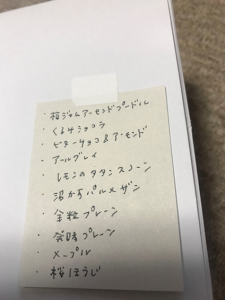 ・桜ジャムアーモンドプードル
・くるみショコラ
・ビターチョコ&アーモンド
・アールグレイ
・レモンのタタンスコーン
・沼かすパルメザン
・全粒プレーン
・発酵プレーン
・メープル
・桜ほうじ